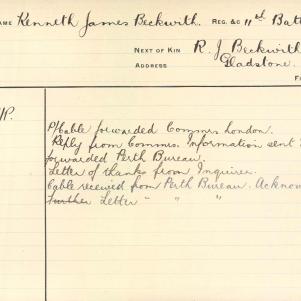 AME Kenneth James Beckwith. REG. &C 11th Bat
NEXT OF KIN R. J. Beckwith
ADDRESS Gladstone.
P.
P/Cable forwarded Commrs London.
Reply from Commrs. Information sent
forwarded Perth Bureau.
Letter of thanks from Inquirer.
Cable received from Perth Bureau. Acknow
Further Letter " " "